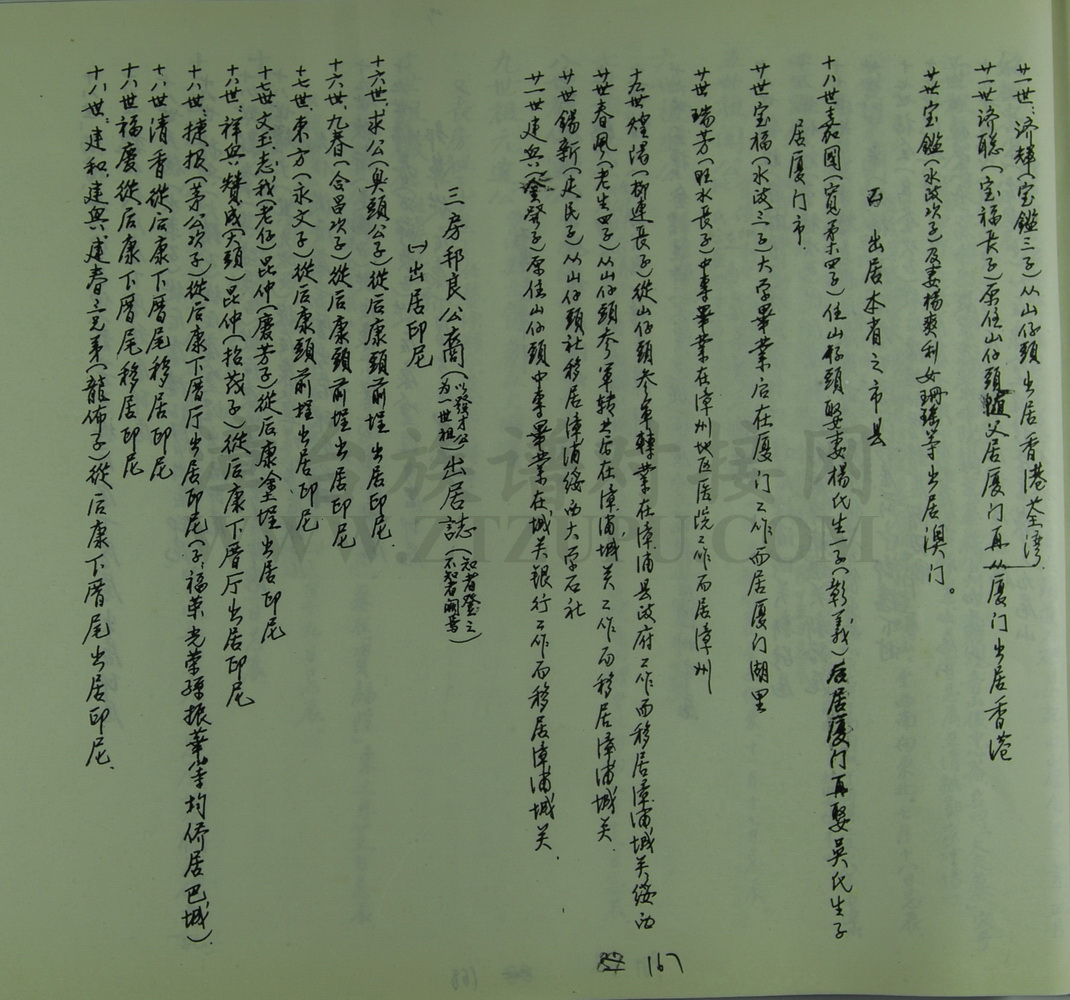 廿一世：济辉（宝鑑三子）从山仔頭出居香港荃湾.
廿一世济聪（宝福長子）原住山仔頭 父居厦门再从厦门出居香港
廿世宝鑑（水波次子）及妻楊爽利女珊瑚等出居澳门。
出居本省之市县
十八世嘉國（寬柔四子）住山仔頭娶妻楊氏生一子（彰義）后居厦门再娶吴氏生子
居厦门市.
廿世宝福（水波三子）大学畢業后在厦门工作而居厦门湖里
廿世瑞芳（旺水長子）中專畢業在漳州地区医院工作而居漳州
十九世煌陽（柳連長子）從山仔頭参军轉業在漳浦县政府工作而移居漳浦城关绥西
廿世春風（老生四子）从山仔頭参军转业后在漳浦城关工作而移居漳浦城关
廿世錫新（庆民子）从山仔頭社移居漳浦绥西大学石社
廿一世建興（金發子）原住山仔頭中專畢業在城关銀行工作而移居漳浦城关.
三房邦良公裔（以發才公为一世祖）出居誌（知者登之不知者闕焉）
㈠出居印尼
十六世.求公（奥頭公子）從后康頭前埕出居印尼.
十六世.九春（含昌次子）從后康頭前埕出居印尼
十七世.東方（永文子）從后康頭前埕出居印尼
十七世文玉.志我（老仔）昆仲（慶芳子）從后康塗埕出居印尼
十八世：祥興贊成（大頭）昆仲（招茂子）從后康下厝厅出居印尼
十八世：捷报（茅公次子）從后康下厝厅出居印尼（子：福荣光荣孫振華等均侨居巴城）.
十八世清香從后康下厝尾移居印尼
十八世福慶從后康下厝尾移居印尼
十八世：建和.建興.建春三兄弟（龍佈子）從后康下厝尾出居印尼.
167
WWW.ZTZUPU.COM